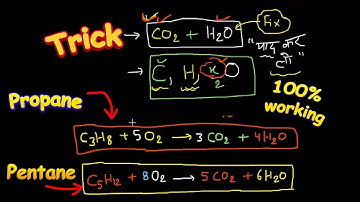 Trick
CO2 + H2O
Fix
"याद कर लो"
C, H, x/2 O
100% working
Propane
C3H8 + 5O2 → 3CO2 + 4H2O
Pentane
C5H12 + 8O2 → 5CO2 + 6H2O